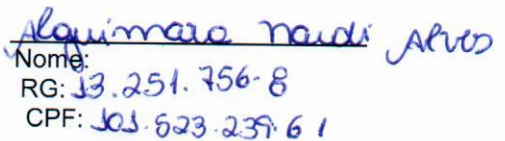 Alquimara Nardi Alves
Nome:
RG: 13.251.756-8
CPF: 101.623.239.61